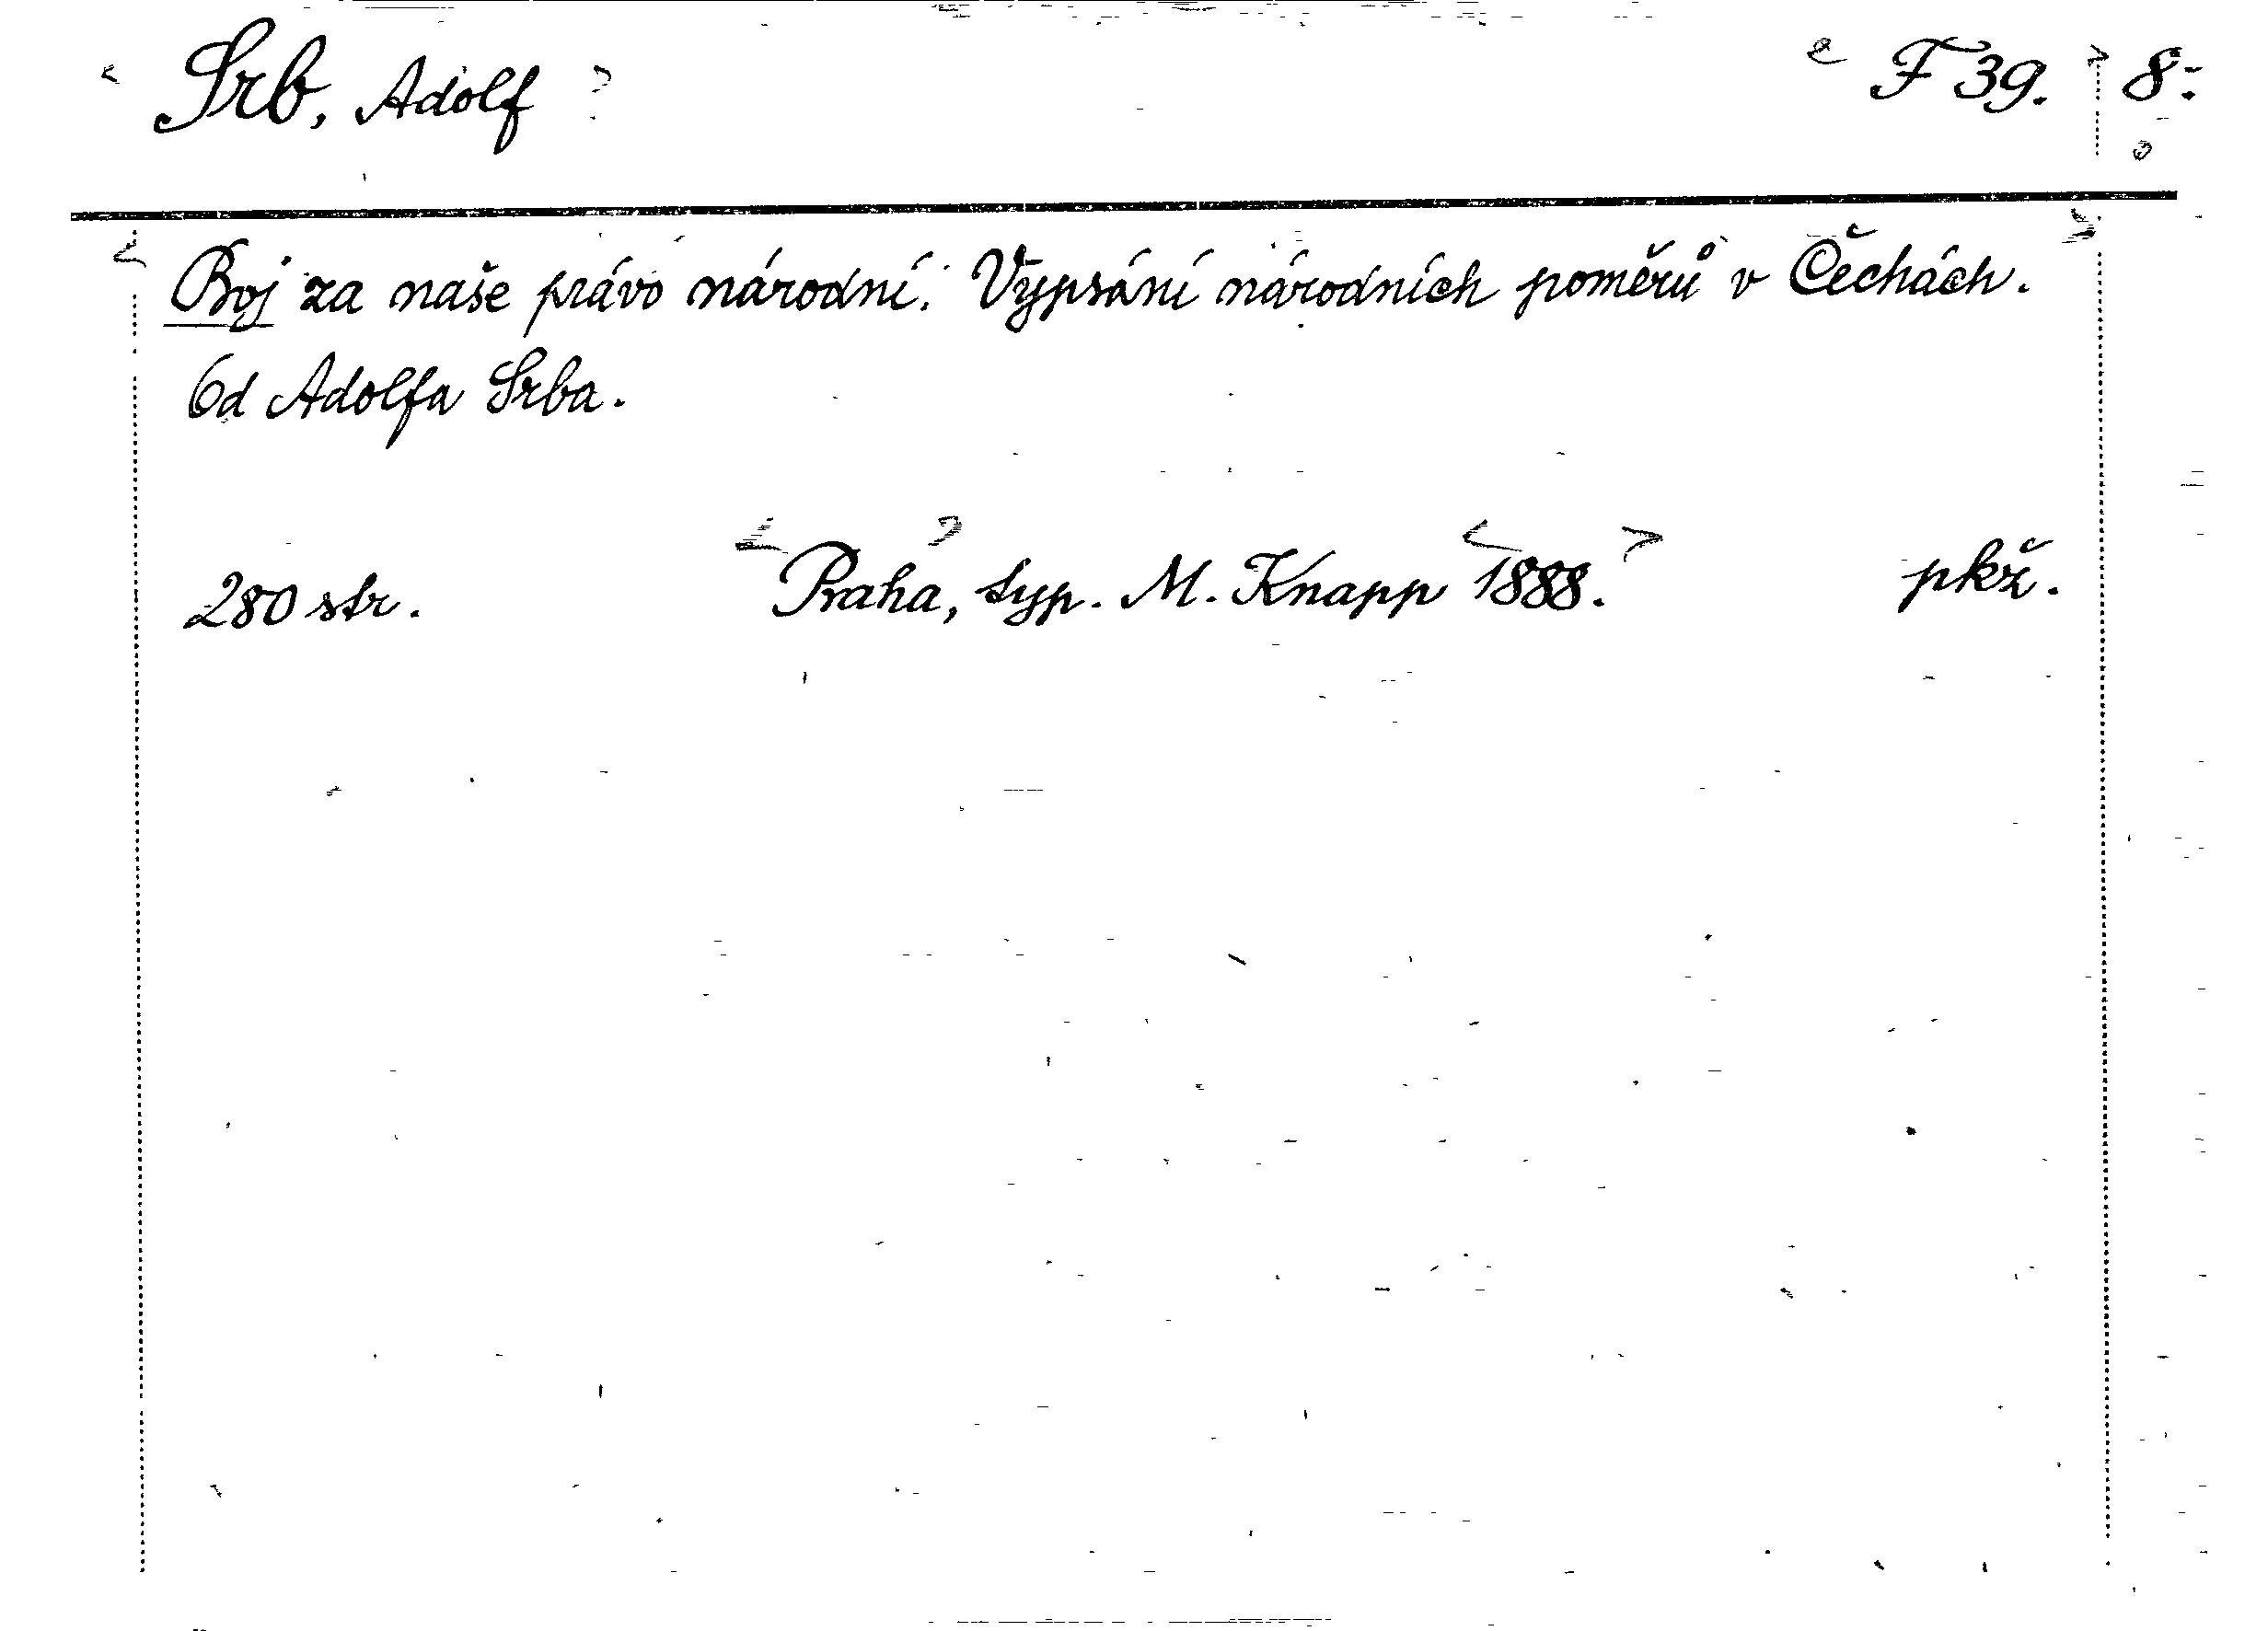 Srb, Adolf F 39. 8:
Boj za naše právo národní. Vypsání národních poměrů v Čechách.
Od Adolfa Srba.
280 str. Praha, typ. M. Knapp 1888. pkž.